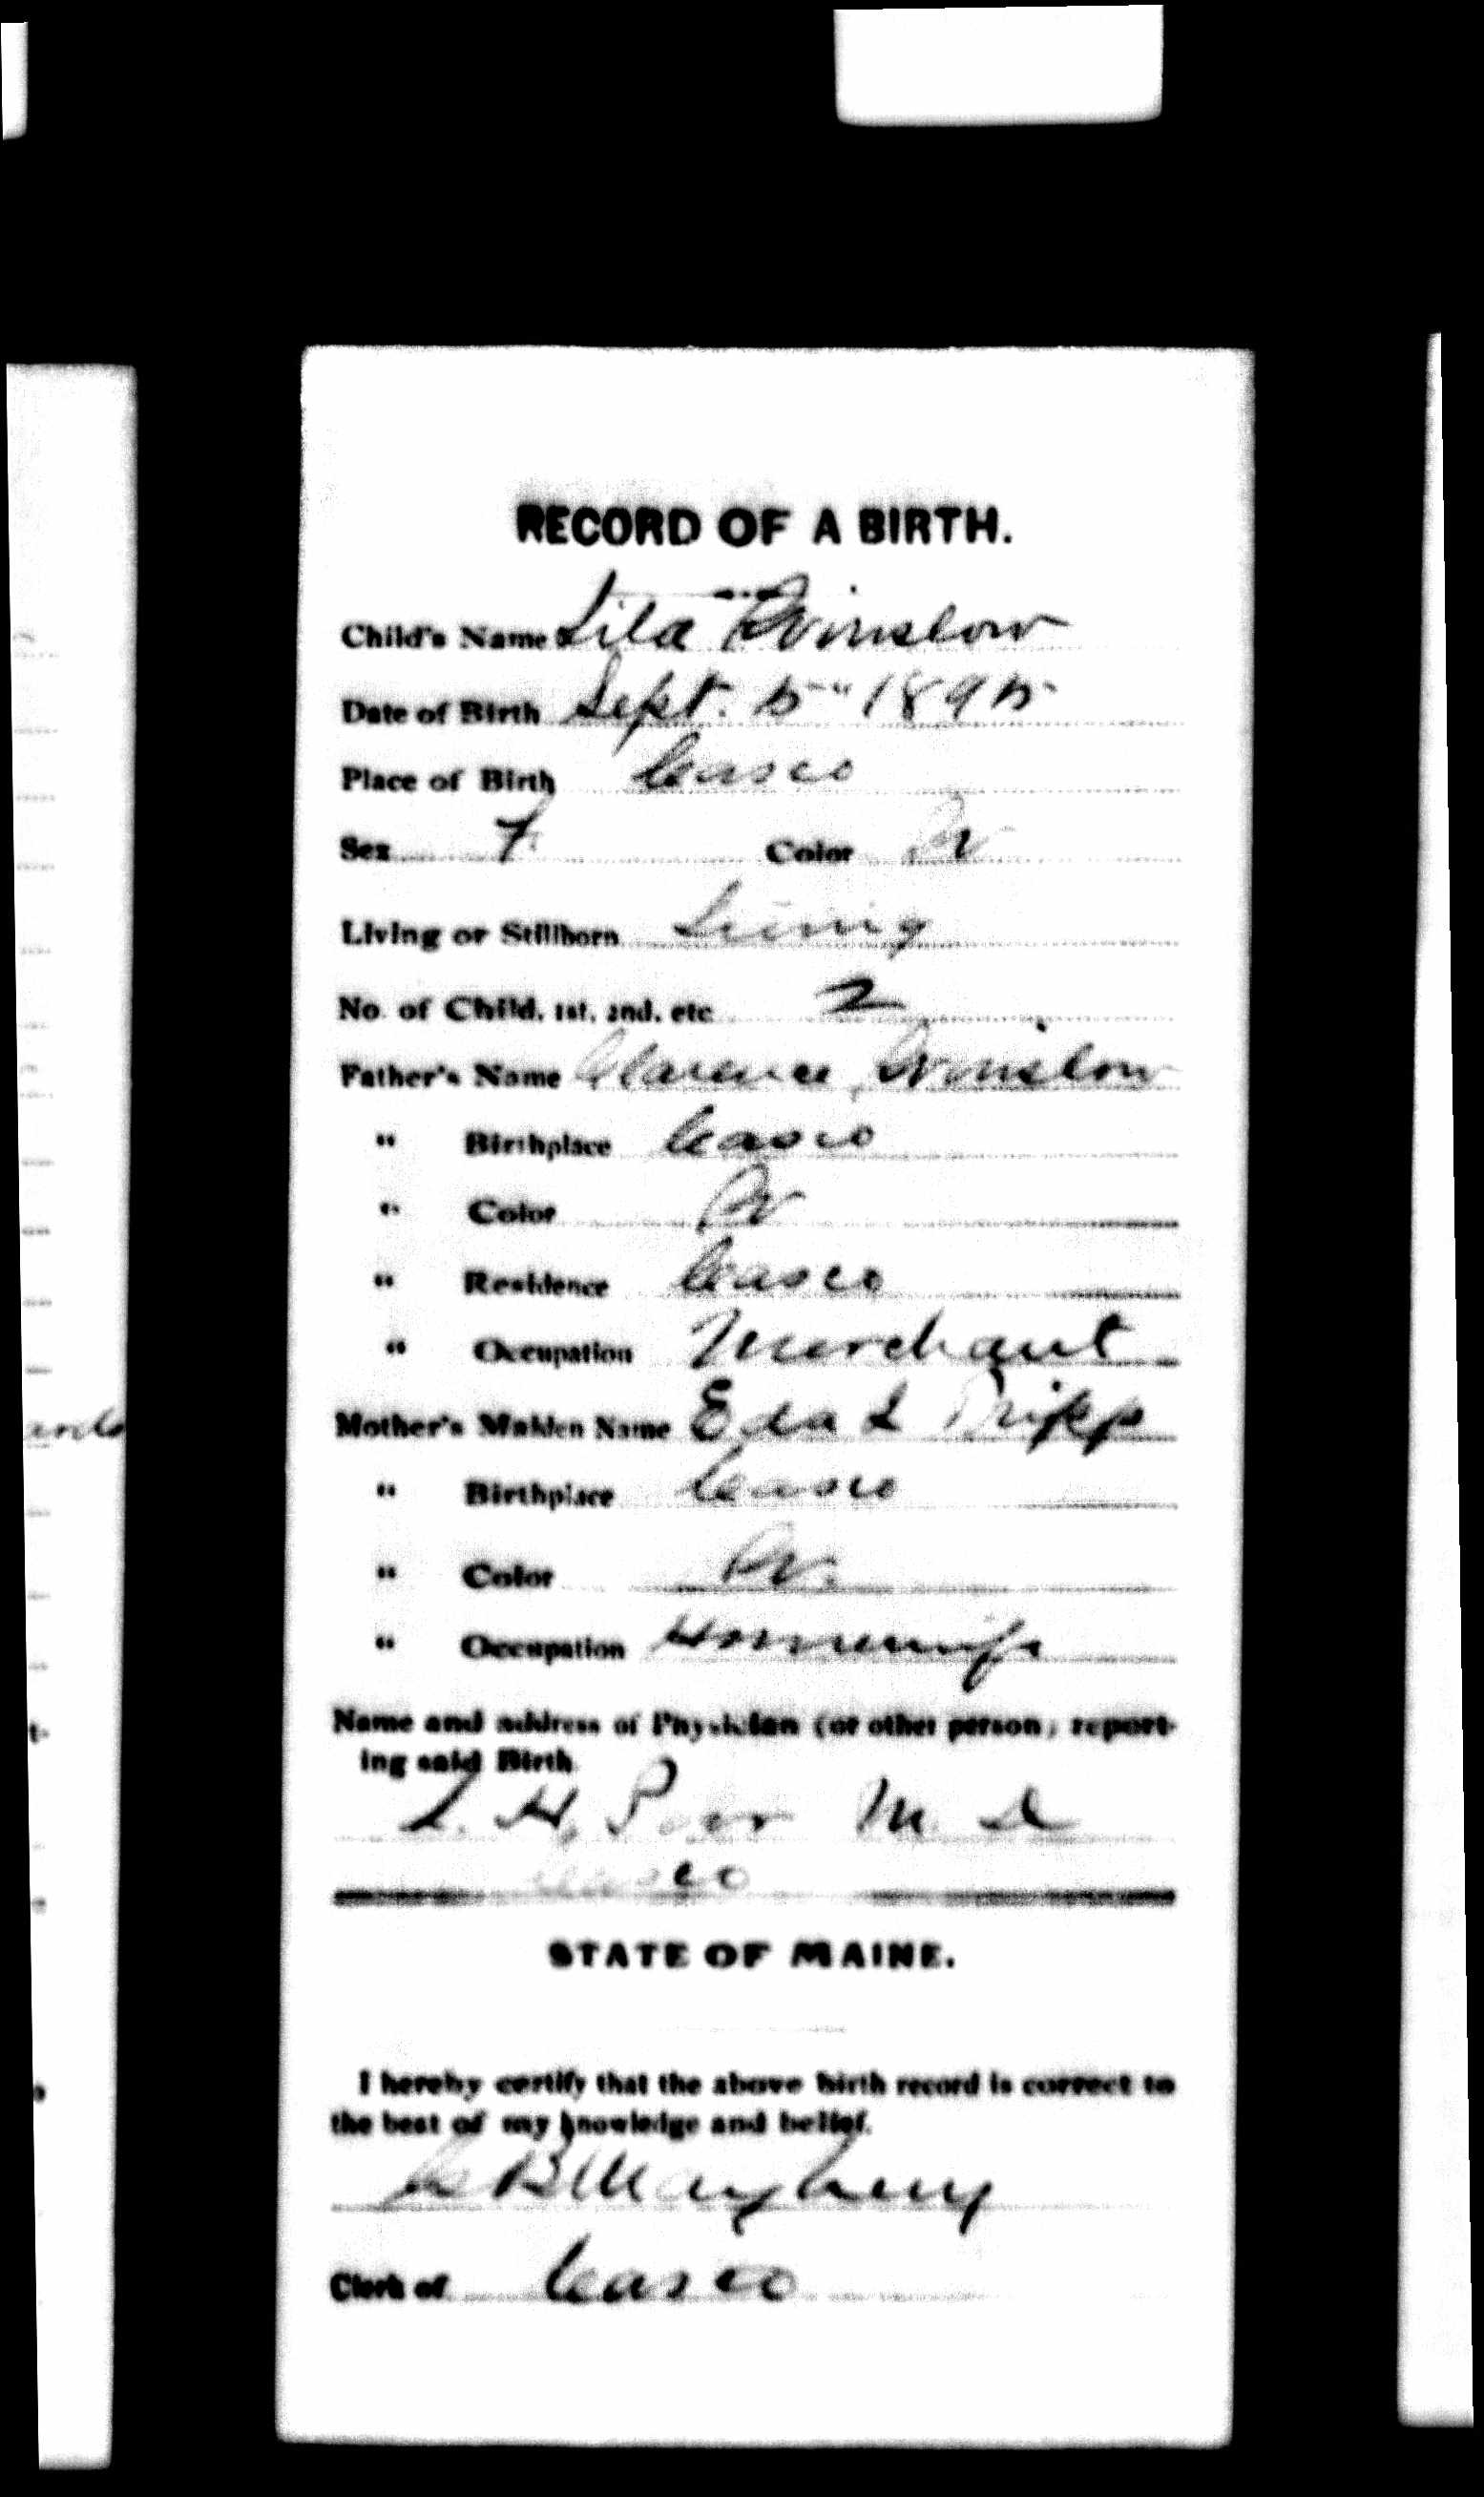 RECORD OF A BIRTH.
Child's Name Lila Winslow
Date of Birth Sept. 5" 1895
Place of Birth Casco
Sex F Color W
Living or Stillborn Living
No. of Child, 1st, 2nd, etc 2
Father's Name Clarence Winslow
" Birthplace Casco
" Color W
" Residence Casco
" Occupation Merchant
Mother's Maiden Name Eda L Tripp
" Birthplace Casco
" Color W.
" Occupation Housewife
Name and address of Physician (or other person) report-
ing said Birth
L. H. Poor M. D
Casco
STATE OF MAINE.
I hereby certify that the above birth record is correct to
the best of my knowledge and belief.
B Mayberry
Clerk of Casco